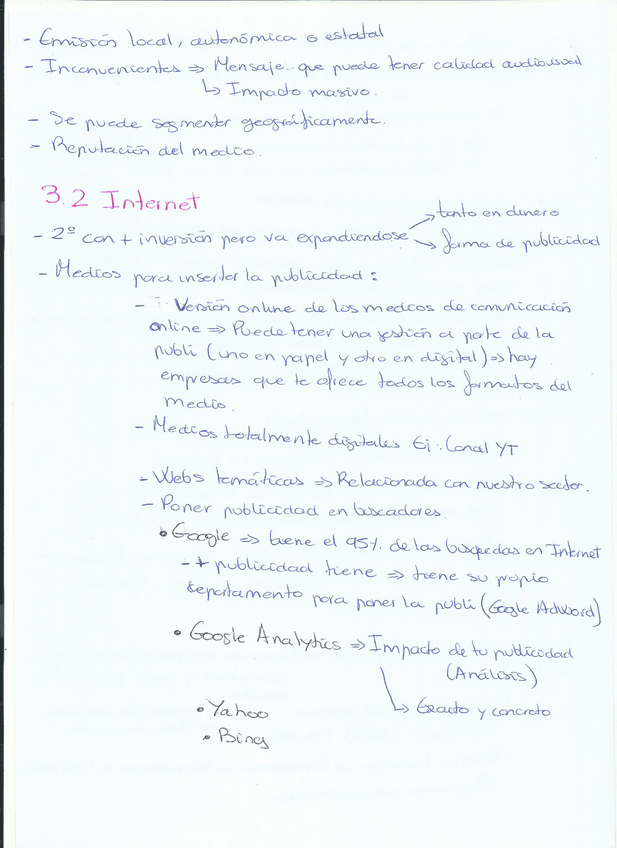 - Emisión local, autonómica o estatal
- Inconvenientes ⇒ Mensaje que puede tener calidad audiovisual
↳ Impacto masivo.
- Se puede segmentar geográficamente.
- Reputación del medio.
3.2 Internet
→ tanto en dinero
- 2º con + inversión pero va expandiendose → forma de publicidad
- Medios para insertar la publicidad:
- Versión online de los medios de comunicación
online ⇒ Puede tener una gestión a parte de la
publi (uno en papel y otro en digital) ⇒ hay
empresas que te ofrece todos los formatos del
medio.
- Medios totalmente digitales Ej: Canal YT
- Webs temáticas ⇒ Relacionada con nuestro sector.
- Poner publicidad en buscadores.
• Google ⇒ tiene el 95% de las busquedas en Internet
- + publicidad tiene ⇒ tiene su propio
departamento para poner la publi (Google Adword)
• Google Analytics ⇒ Impacto de tu publicidad
(Análisis)
↳ Exacto y concreto
• Yahoo
• Bing